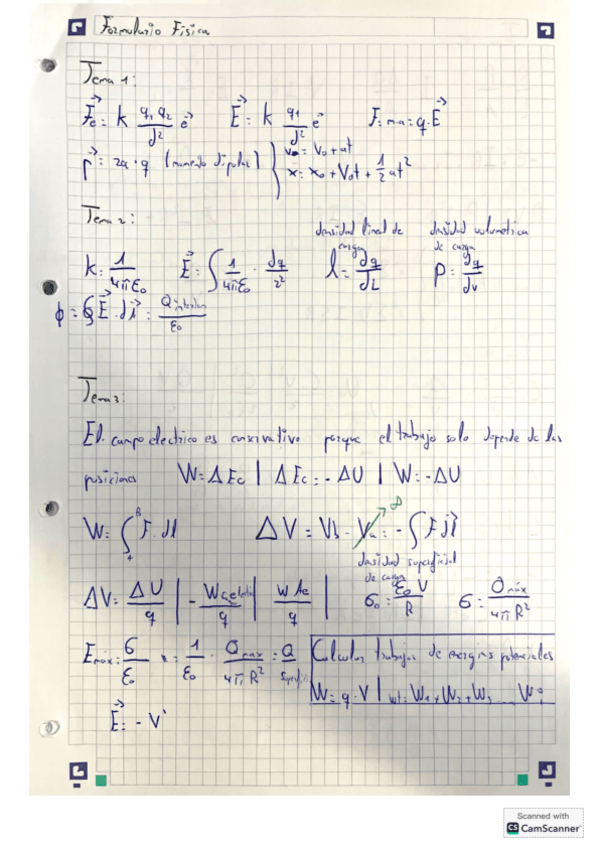 Formulario Física
Tema 1:
F⃗e = k q1 q2 / d² e⃗    E⃗ = k q1 / d² e⃗    F = m·a = q·E⃗
p⃗ = 2a · q (momento dipolar) } v = v0 + at
x = x0 + V0t + 1/2 at²
Tema 2:
densidad lineal de carga    densidad volumetrica de carga
k = 1 / 4πε0    E⃗ = ∫ 1 / 4πε0 · dq / r²    λ = dq / dL    ρ = dq / dv
ϕ = ∮ E⃗ · ds⃗ = Q interior / ε0
Tema 3:
El campo electrico es conservativo porque el trabajo solo depende de las
posiciones    W = ΔEc | ΔEc = - ΔU | W = -ΔU
W = ∫ F · dl    ΔV = Vb - Va = - ∫ F dl⃗    ∞
densidad superficial de carga
ΔV = ΔU / q | - W / q | W / q |    σ0 = ε0 V / R    σ = Q máx / 4π R²
Emáx = σ / ε0 = 1 / ε0 · Q máx / 4π R² = Q    Calcular trabajos de energias potenciales
W = q · V | Wt = W1 + W2 + W3 ...
E⃗ = - V'
Scanned with
CS CamScanner